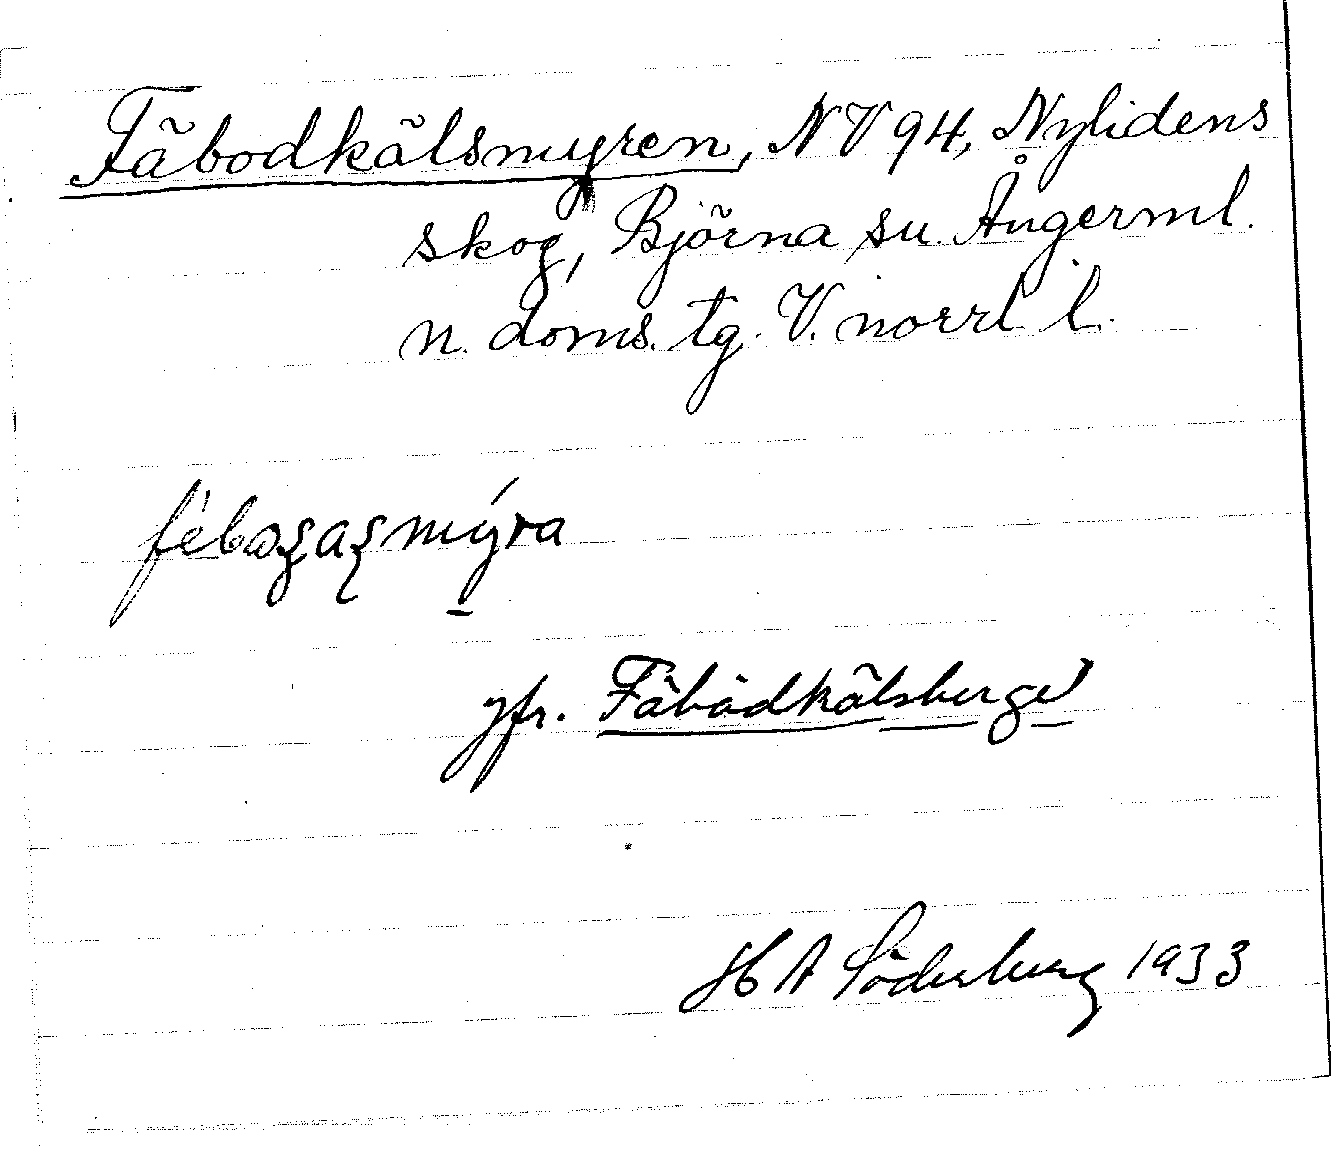 Fäbodkälsmyren, NV 94, Nylidens
skog, Björna sn. Ångerml.
n. doms. tg. V. norrl l.
jfr. Fäbodkälsberget
H A Söderberg 1933